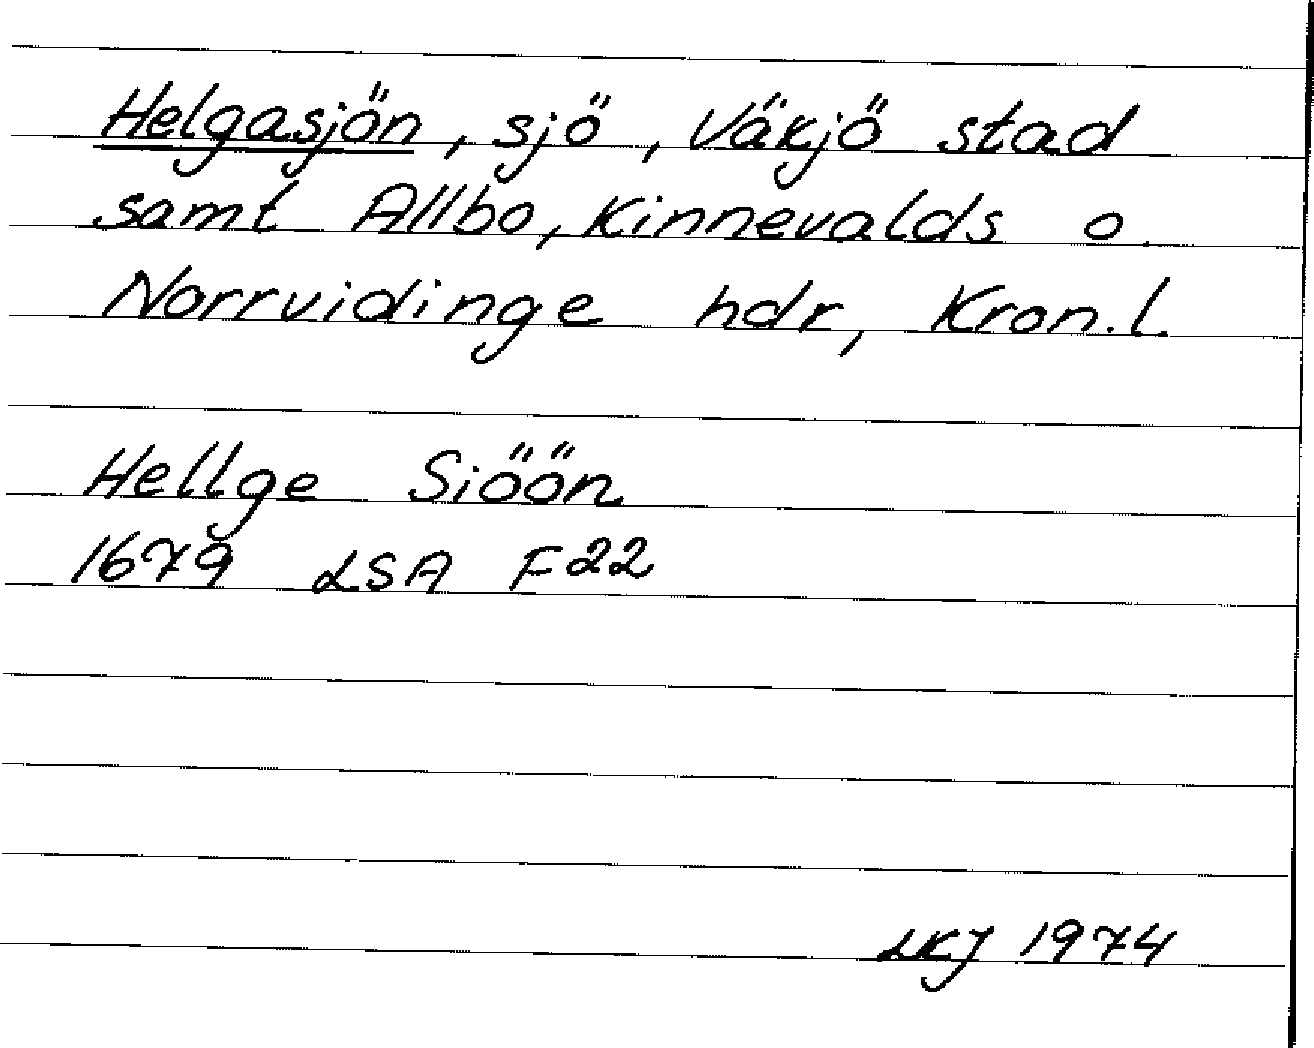 Helgasjön, sjö, Väkjö stad
samt Allbo, Kinnevalds o.
Norrvidinge hdr, Kron.l.
Hellge Siöön
1679 LSA F22
LKJ 1974